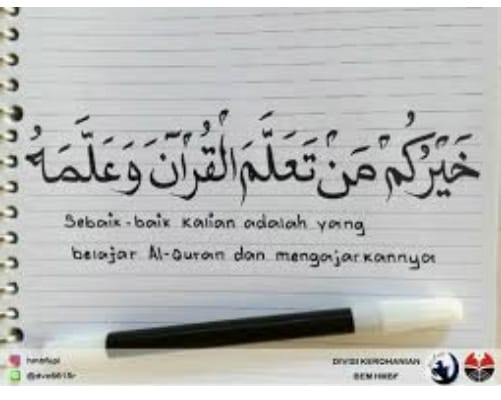 خَيْرُكُمْ مَنْ تَعَلَّمَ الْقُرْآنَ وَعَلَّمَهُ
Sebaik-baik kalian adalah yang
belajar Al-Quran dan mengajarkannya
DIVISI KEROHANIAN